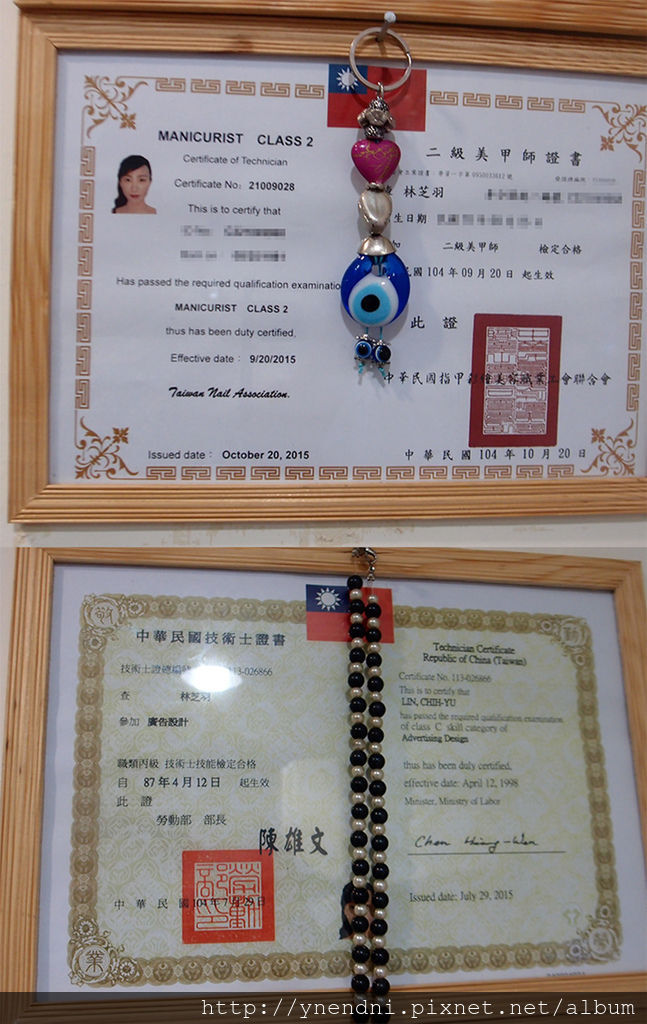 MANICURIST CLASS 2
Certificate of Technician
Certificate No: 21009028
This is to certify that
Has passed the required qualification examination
MANICURIST CLASS 2
thus has been duty certified,
Effective date : 9/20/2015
Taiwan Nail Association.
Issued date : October 20, 2015
二級美甲師證書
林芝羽
生日期
二級美甲師 檢定合格
國 104 年 09 月 20 日 起生效
此 證
中華民國指甲彩繪美容職業工會聯合會
中 華 民 國 104 年 10 月 20 日
中華民國技術士證書
技術士證總編 113-026866
查 林芝羽
參加 廣告設計
職類丙級 技術士技能檢定合格
自 87 年 4 月 12 日 起生效
此 證
勞動部 部長
陳雄文
中 華 民 國 104 年 7 月 29 日
Technician Certificate
Republic of China (Taiwan)
Certificate No. 113-026866
This is to certify that
LIN, CHIH-YU
has passed the required qualification examination
of class C skill category of
Advertising Design
thus has been duty certified,
effective date: April 12, 1998
Minister, Ministry of Labor
Chen Hsiung-Wen
Issued date: July 29, 2015
敬
勤
業
http://ynendni.pixnet.net/album